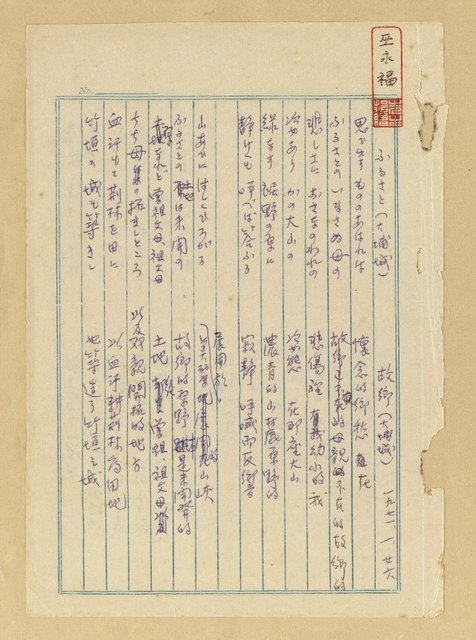 巫永福
No.
ふるさと（大埔城）
思ひ出すもののあはれは
ふるさとの いまさぬ母の
悲しさに おさなのわれの
姿あり かの大山の
緑なす 裾野の原に
静けくも 呼べば答ふる
山あひに はしくひろがる
ふるさとの 土地は未開の
曾祖父母、祖父母
ちち母の拓きしところ
血汗もて荊林を田に
竹垣の城を築きし
故鄉（大埔城） 一九七一、一、廿六
懷念的鄉愁 在
故鄉 的母親 不在的故鄉的
悲傷裡 有我幼小的 我
姿態 在那座大山
濃青的山麓原野的
寂靜 呼喊而反響
展開於
美 地展開 山峽
故鄉的原野 是未開發的
土地 曾祖、祖父母
以及双親開拓的地方
以血汗耕荊林為田地
也築造了竹垣之城